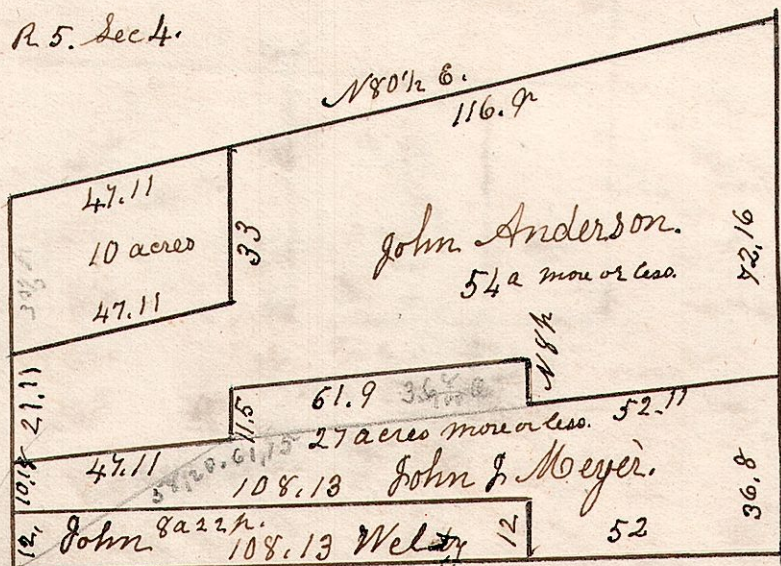 R 5. Sec 4.
N 80½ E.
116. 9r
47.11
10 acres
33
John Anderson.
54a more or less.
72.16
47.11
N 8 ½
21.11
11.5
61.9
52.11
27 acres more or less.
47.11
108.13 John J Meyer.
36.8
12,
John 8a 22 p.
108.13 Welty
12
52